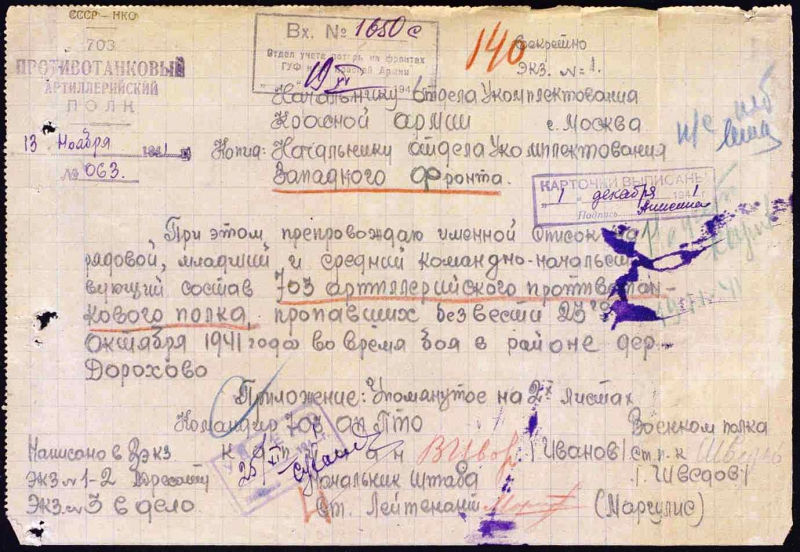 СССР - НКО
703
ПРОТИВОТАНКОВЫЙ
АРТИЛЛЕРИЙСКИЙ
ПОЛК
13 Ноября 1941 г.
№ 063.
Вх. № 1650 с
Отдел учета потерь на фронтах
ГУФ Красной Армии
19 XI 194
140
Секретно
Экз. №1.
Начальнику отдела Укомплектования
Красной армии г. Москва
Копия: Начальнику отдела Укомплектования
Западного Фронта.
КАРТОЧКИ ВЫПИСАНЫ
"1" декабря 1941 г.
Подпись
При этом препровождаю именной список на
рядовой, младший и средний командно-начальст
вующий состав 703 арттиллерийского проттвотан-
кового полка, пропавших без вести 23го
Октября 1941 года во время боя в районе дер.
Дорохово
Приложение: Упомянутое на 2х листах
Командир 703 ап ПТО Военком полка
Написано в 3 экз
Экз №1-2 Адресату
Экз. №3 в дело
25/XI
(Иванов) ст. п-к
(Шведов)
Начальник штаба
Ст. Лейтенант (Маргулис)